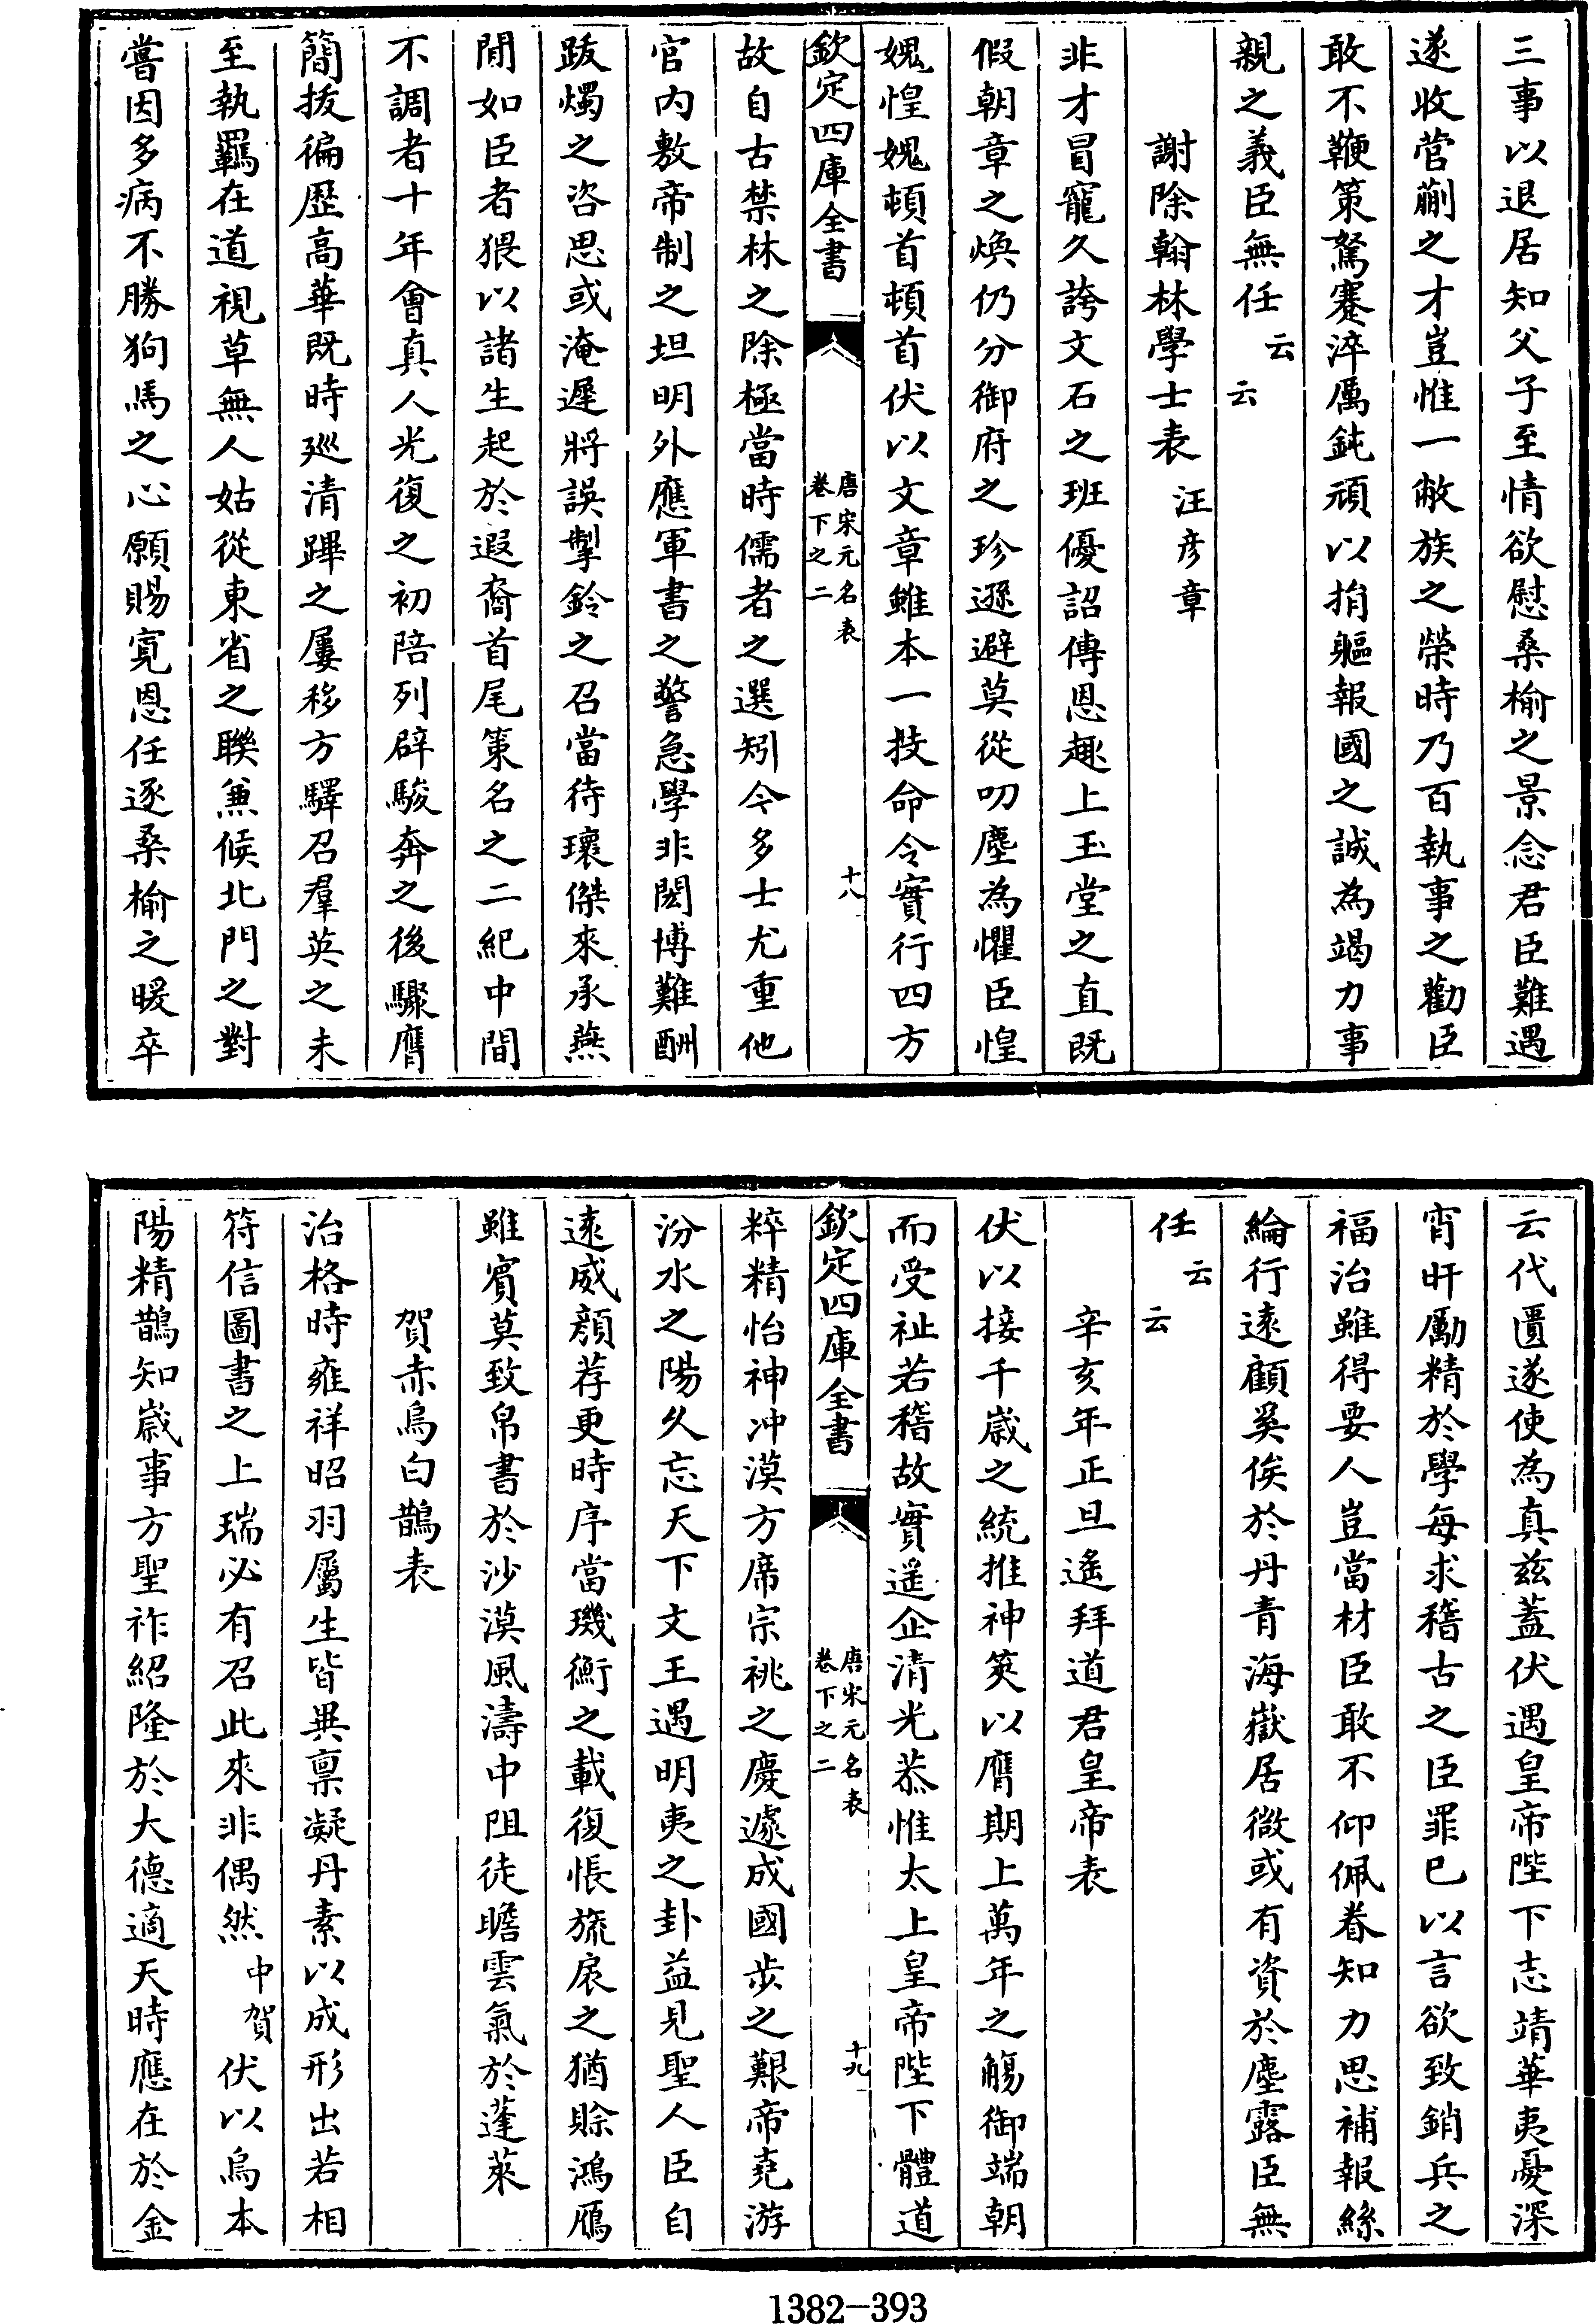 三事以退居知父子至情欲慰桑榆之景念君臣難遇
遂收菅蒯之才豈惟一敝族之榮時乃百執事之勸臣
敢不鞭策駑蹇淬厲鈍頑以捐軀報國之誠為竭力事
親之義臣無任云云
謝除翰林學士表 汪彦章
非才冒寵久誇文石之班優詔傳恩趣上玉堂之直既
假朝章之煥仍分御府之珍遜避莫從叨塵為懼臣惶
媿惶媿頓首頓首伏以文章雖本一技命令實行四方
欽定四庫全書 唐宋元名表 卷下之二 十八
故自古禁林之除極當時儒者之選矧今多士尤重他
官内敷帝制之坦明外應軍書之警急學非閎博難酬
跋燭之咨思或淹遲將誤掣鈴之召當待瓌傑來承燕
閒如臣者猥以諸生起於遐裔首尾策名之二紀中間
不調者十年會真人光復之初陪列辟駿奔之後驟膺
簡拔徧歴高華既時廵清蹕之屢移方驛召羣英之未
至執羈在道視草無人姑從東省之聯兼候北門之對
嘗因多病不勝狗馬之心願賜寛恩任逐桑榆之暖卒
云代匱遂使為真兹蓋伏遇皇帝陛下志靖華夷憂深
宵旰勵精於學每求稽古之臣罪已以言欲致銷兵之
福治雖得要人豈當材臣敢不仰佩眷知力思補報絲
綸行遠顧奚俟於丹青海嶽居微或有資於塵露臣無
任云云
辛亥年正旦遙拜道君皇帝表
伏以接千歳之統推神筴以膺期上萬年之觴御端朝
而受祉若稽故實遥企清光恭惟太上皇帝陛下體道
欽定四庫全書 唐宋元名表 卷下之二 十九
粹精怡神沖漠方席宗祧之慶遽成國步之艱帝堯游
汾水之陽久忘天下文王遇明夷之卦益見聖人臣自
遠威顔荐更時序當璣衡之載復悵旒扆之猶賒鴻鴈
雖賓莫致帛書於沙漠風濤中阻徒瞻雲氣於蓬萊
賀赤烏白鵲表
治格時雍祥昭羽屬生皆異禀凝丹素以成形出若相
符信圖書之上瑞必有召此來非偶然中賀伏以烏本
陽精鵲知歳事方聖祚紹隆於大德適天時應在於金
1382-393